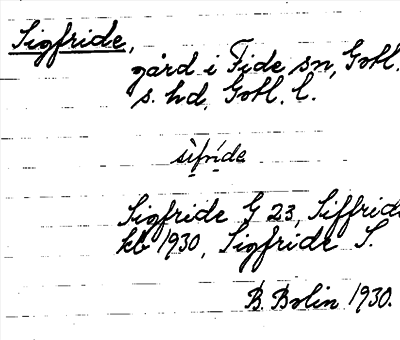 Sigfride,
gård i Fide sn, Gotl.
s. hd, Gotl. l.
sìfríde
Sigfride G 23, Siffride
kb 1930, Sigfride S.
B. Bolin 1930.